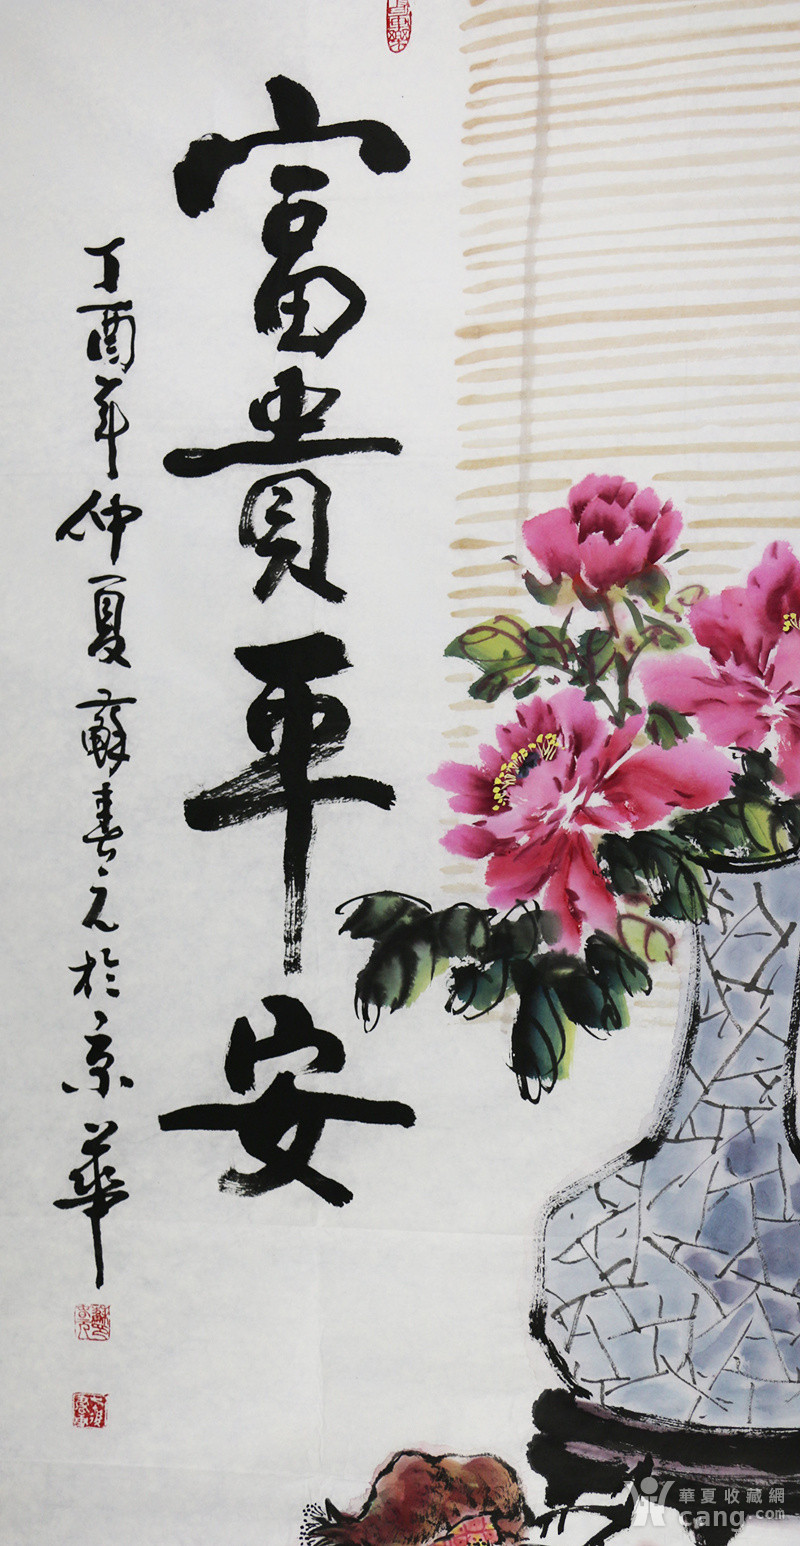 富貴平安
丁酉年仲夏蘇春元於京華
華夏收藏網
cang.com